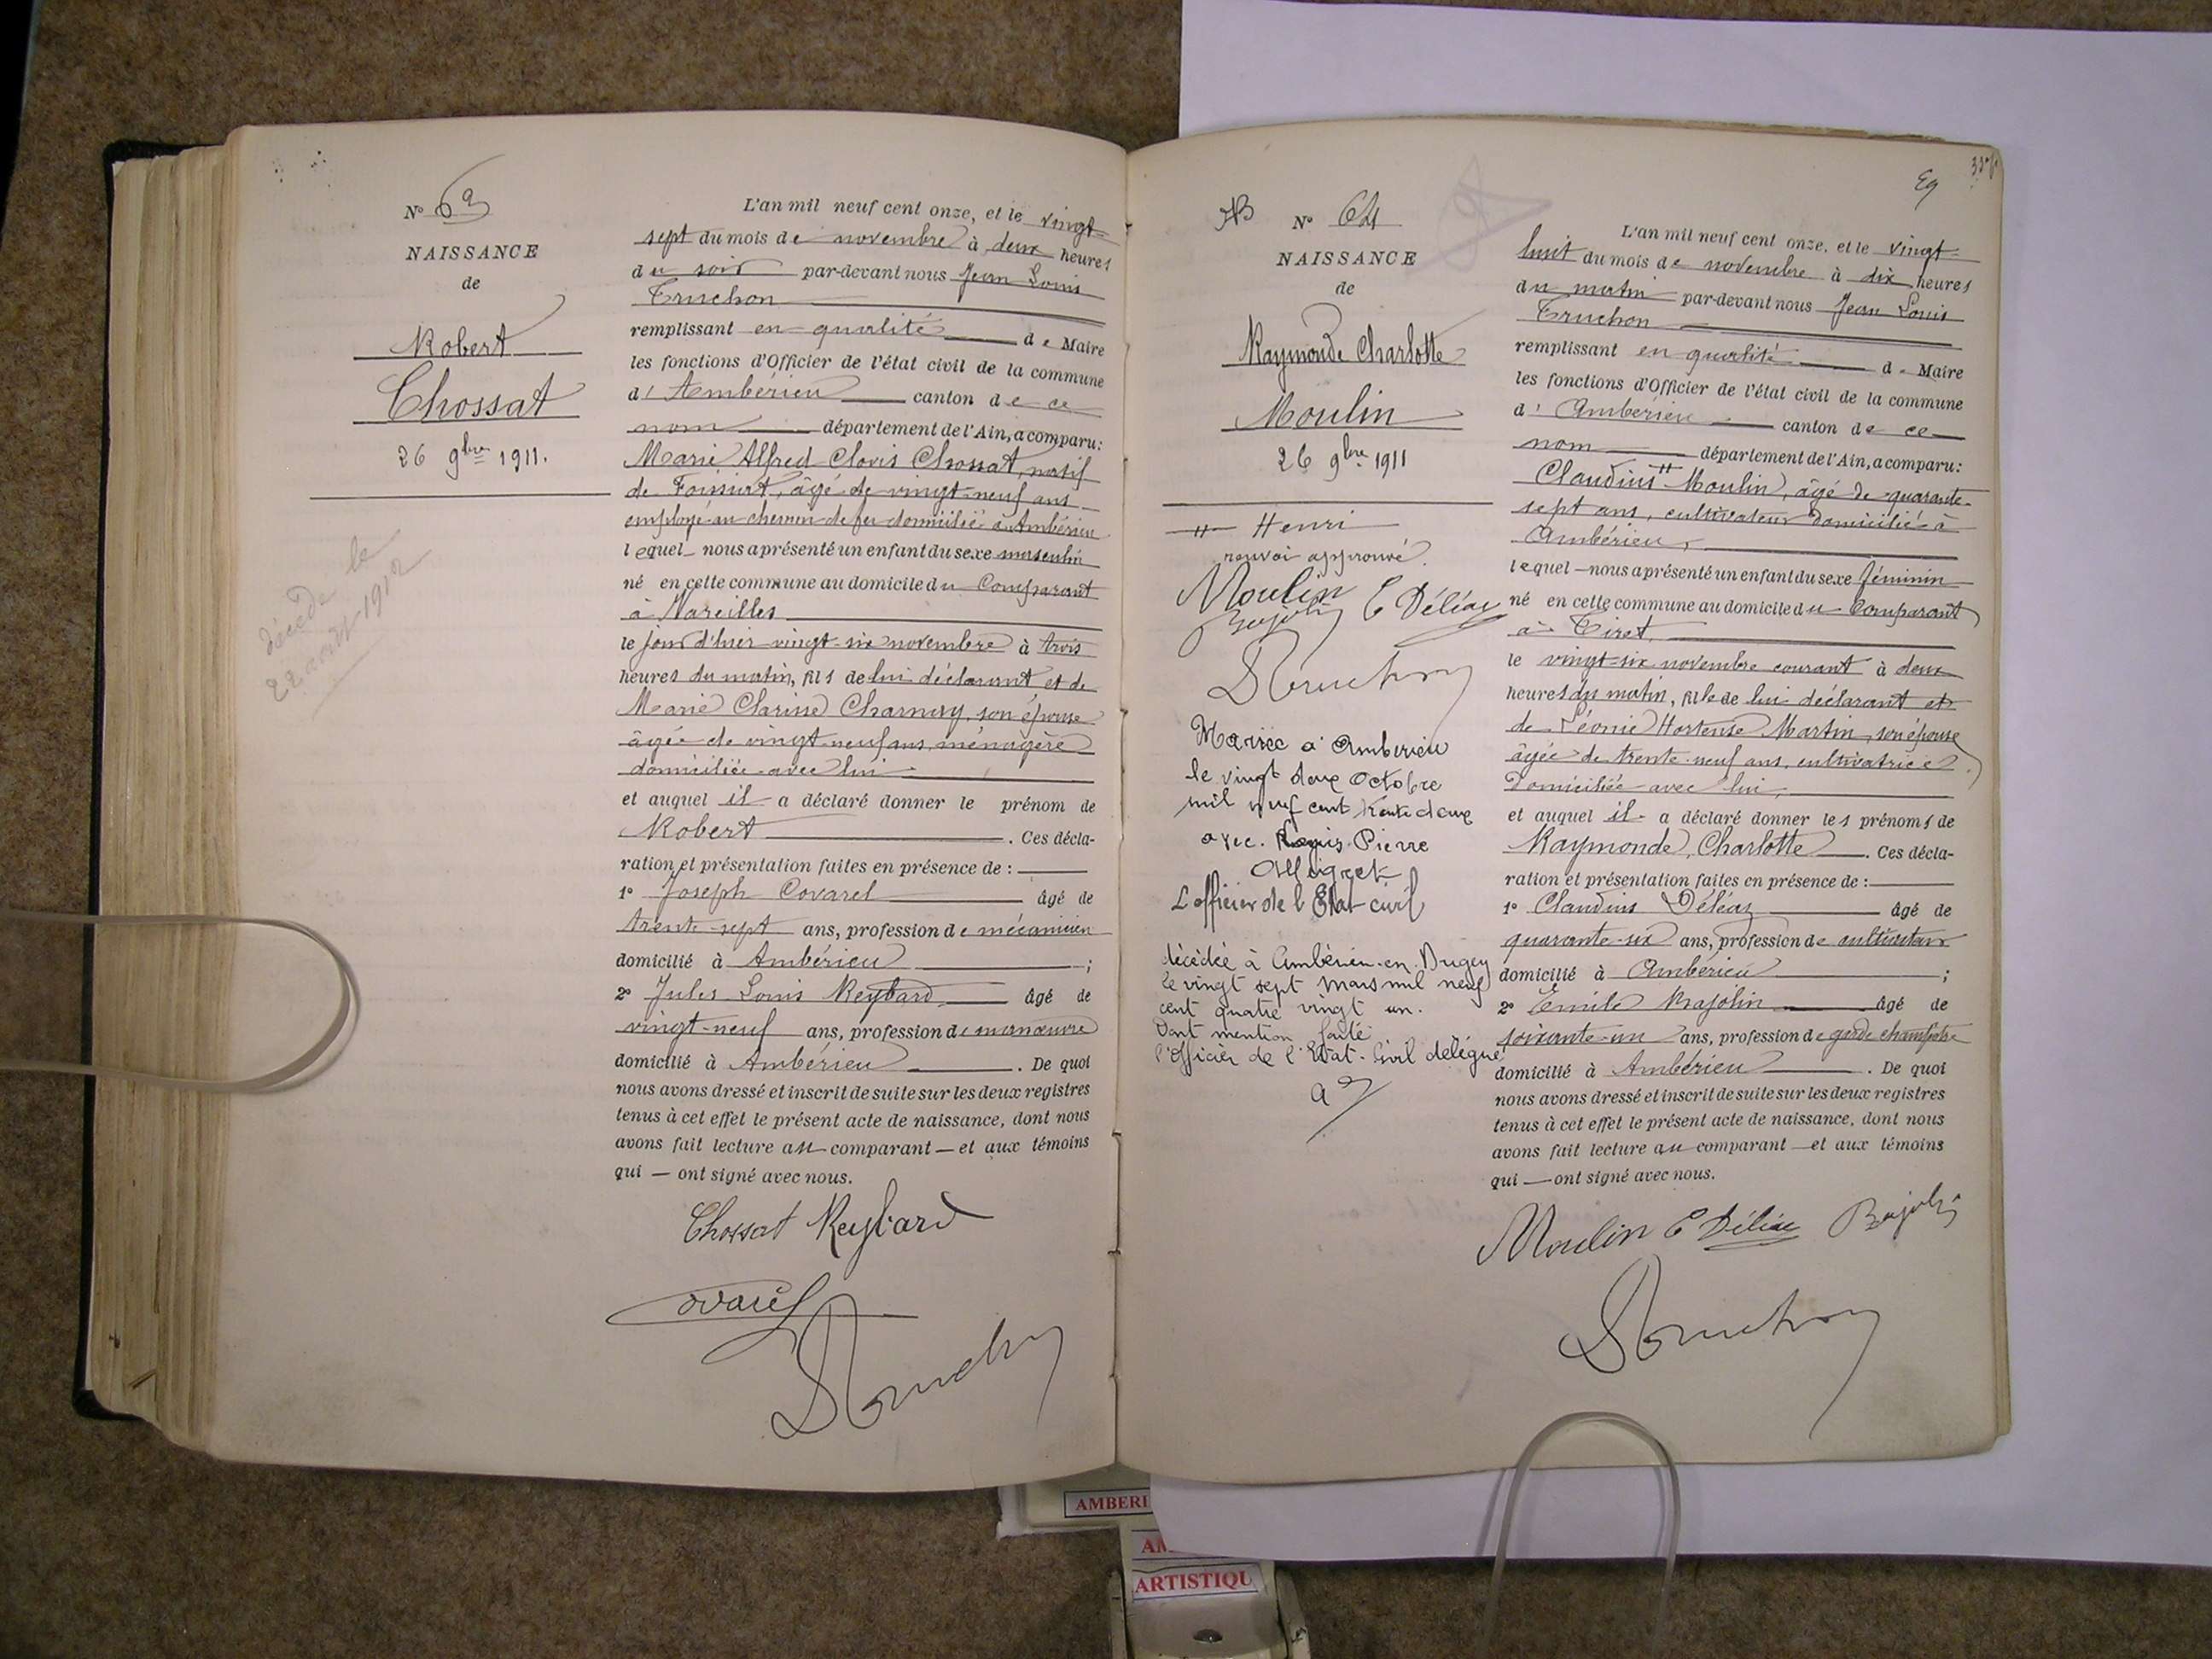 N° 63
NAISSANCE
de
Robert
Chossat
26 9bre 1911.
décédé le
22 août 1912
L'an mil neuf cent onze, et le vingt-
sept du mois de novembre à deux heures
du soir par-devant nous Jean Louis
Truchon
remplissant en qualité de Maire
les fonctions d'Officier de l'état civil de la commune
d'Ambérieu canton de ce
nom département de l'Ain, a comparu:
Marie Alfred Clovis Chossat, natif
de âgé de vingt-neuf ans
employé au chemin de fer domicilié à Ambérieu
lequel nous a présenté un enfant du sexe masculin
né en cette commune au domicile du Comparant
à Vareilles
le jour d'hier vingt-six novembre à trois
heures du matin, fils de lui déclarant et de
Marie Clarisse son épouse
âgée de vingt-neuf ans, ménagère
domiciliée avec lui
et auquel il a déclaré donner le prénom de
Robert. Ces décla-
ration et présentation faites en présence de :
1° Joseph Covarel âgé de
trente-sept ans, profession de mécanicien
domicilié à Ambérieu ;
2° Jules Louis Reybard âgé de
vingt-neuf ans, profession de manœuvre
domicilié à Ambérieu. De quoi
nous avons dressé et inscrit de suite sur les deux registres
tenus à cet effet le présent acte de naissance, dont nous
avons fait lecture au comparant et aux témoins
qui ont signé avec nous.
Chossat Reybard
Covarel
Truchon
Eg
N° 64
NAISSANCE
de
Raymonde Charlotte
Moulin
26 9bre 1911
H Henri
renvoi approuvé.
Moulin
Bajolin C Déléaz
Truchon
Mariée à Ambérieu
le vingt deux Octobre
mil neuf cent trente deux
avec Louis Pierre
L'officier de l'Etat-civil
décédée à Ambérieu-en-Bugey
le vingt sept Mars mil neuf
cent quatre vingt un.
Dont mention faite
l'Officier de l'Etat-Civil délégué
L'an mil neuf cent onze, et le vingt-
huit du mois de novembre à dix heures
du matin par-devant nous Jean Louis
Truchon
remplissant en qualité de Maire
les fonctions d'Officier de l'état civil de la commune
d'Ambérieu canton de ce
nom département de l'Ain, a comparu:
Claudius H Moulin, âgé de quarante-
sept ans, cultivateur domicilié à
Ambérieu,
lequel nous a présenté un enfant du sexe féminin
né en cette commune au domicile du Comparant
à Tiret
le vingt-six novembre courant à deux
heures du matin, fille de lui déclarant et
de Léonie Hortense Martin, son épouse
âgée de trente-neuf ans, cultivatrice
Domiciliée avec lui,
et auquel il a déclaré donner les prénoms de
Raymonde, Charlotte. Ces décla-
ration et présentation faites en présence de :
1° Claudius Déléaz âgé de
quarante-six ans, profession de cultivateur
domicilié à Ambérieu ;
2° Emile Bajolin âgé de
soixante-un ans, profession de garde champêtre
domicilié à Ambérieu. De quoi
nous avons dressé et inscrit de suite sur les deux registres
tenus à cet effet le présent acte de naissance, dont nous
avons fait lecture au comparant et aux témoins
qui ont signé avec nous.
Moulin C Déléaz Bajolin
Truchon
AMBERI
AM
ARTISTIQU